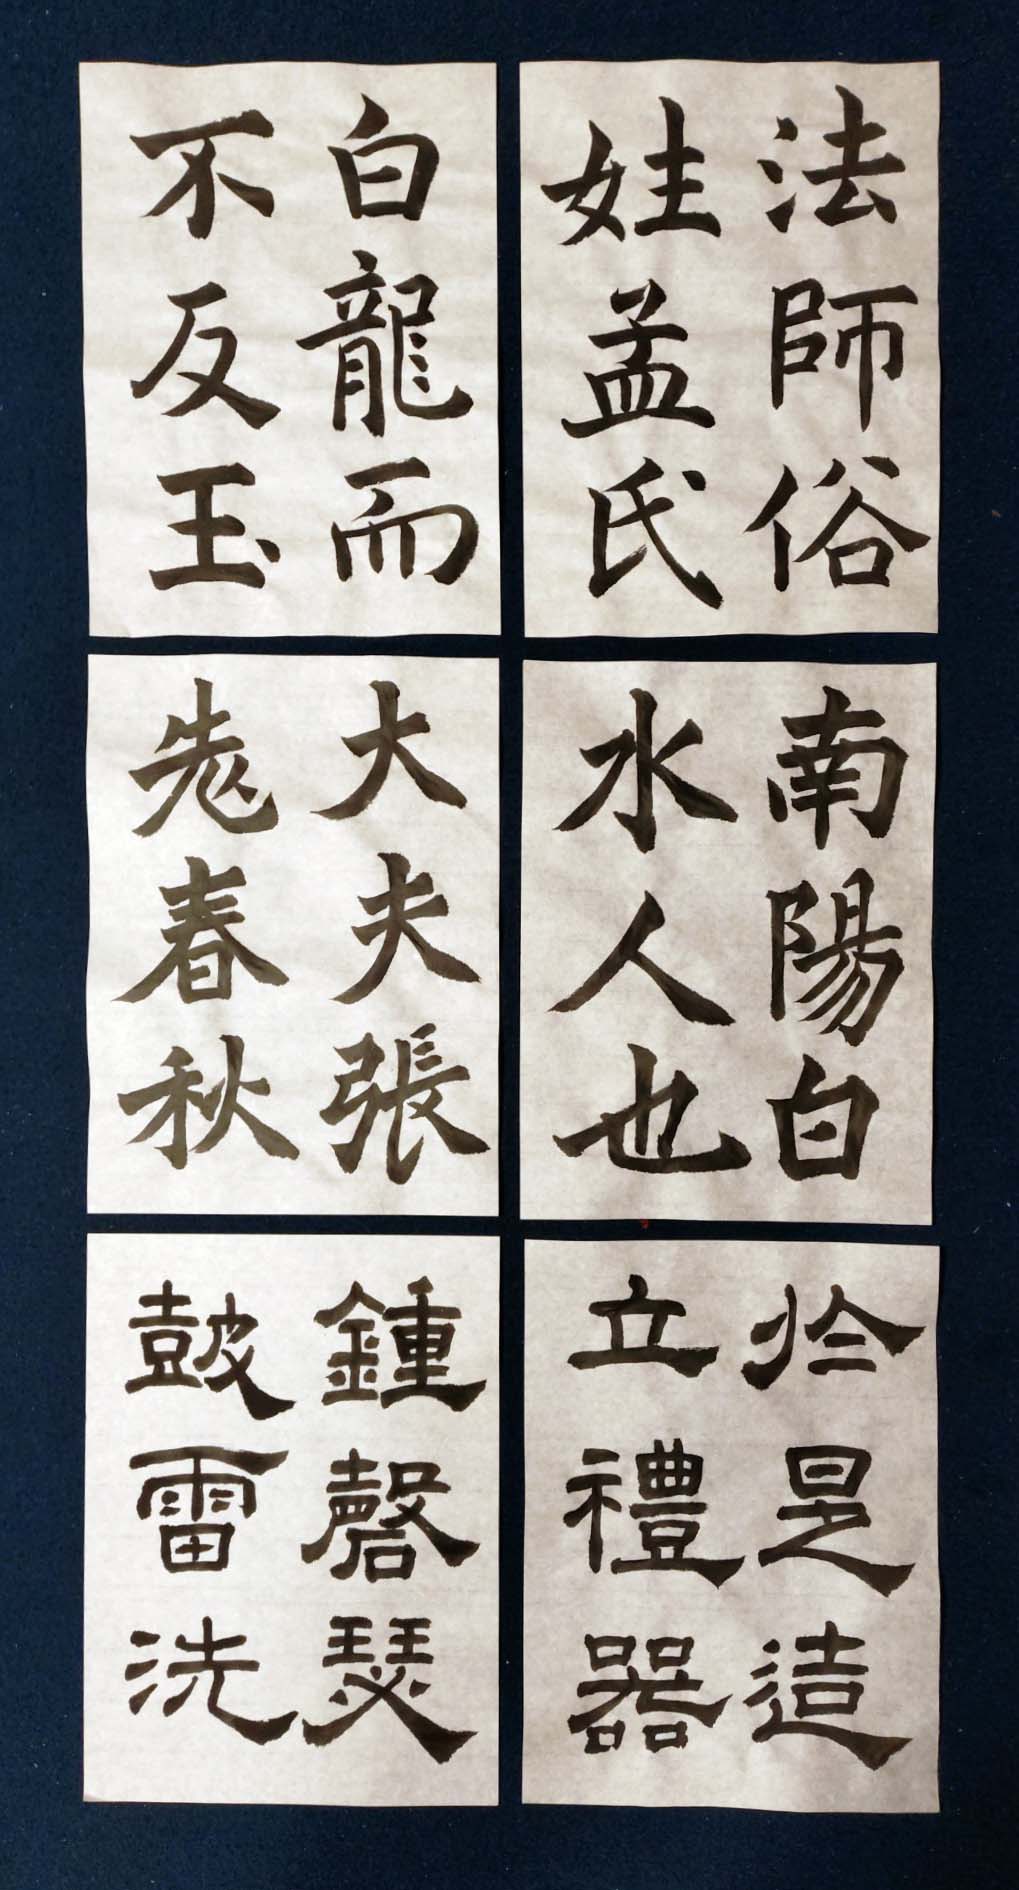 法師俗
姓孟氏
白龍而
不反玉
南陽白
水人也
大夫張
老春秋
於是造
立禮器
鍾磬瑟
皷雷洗